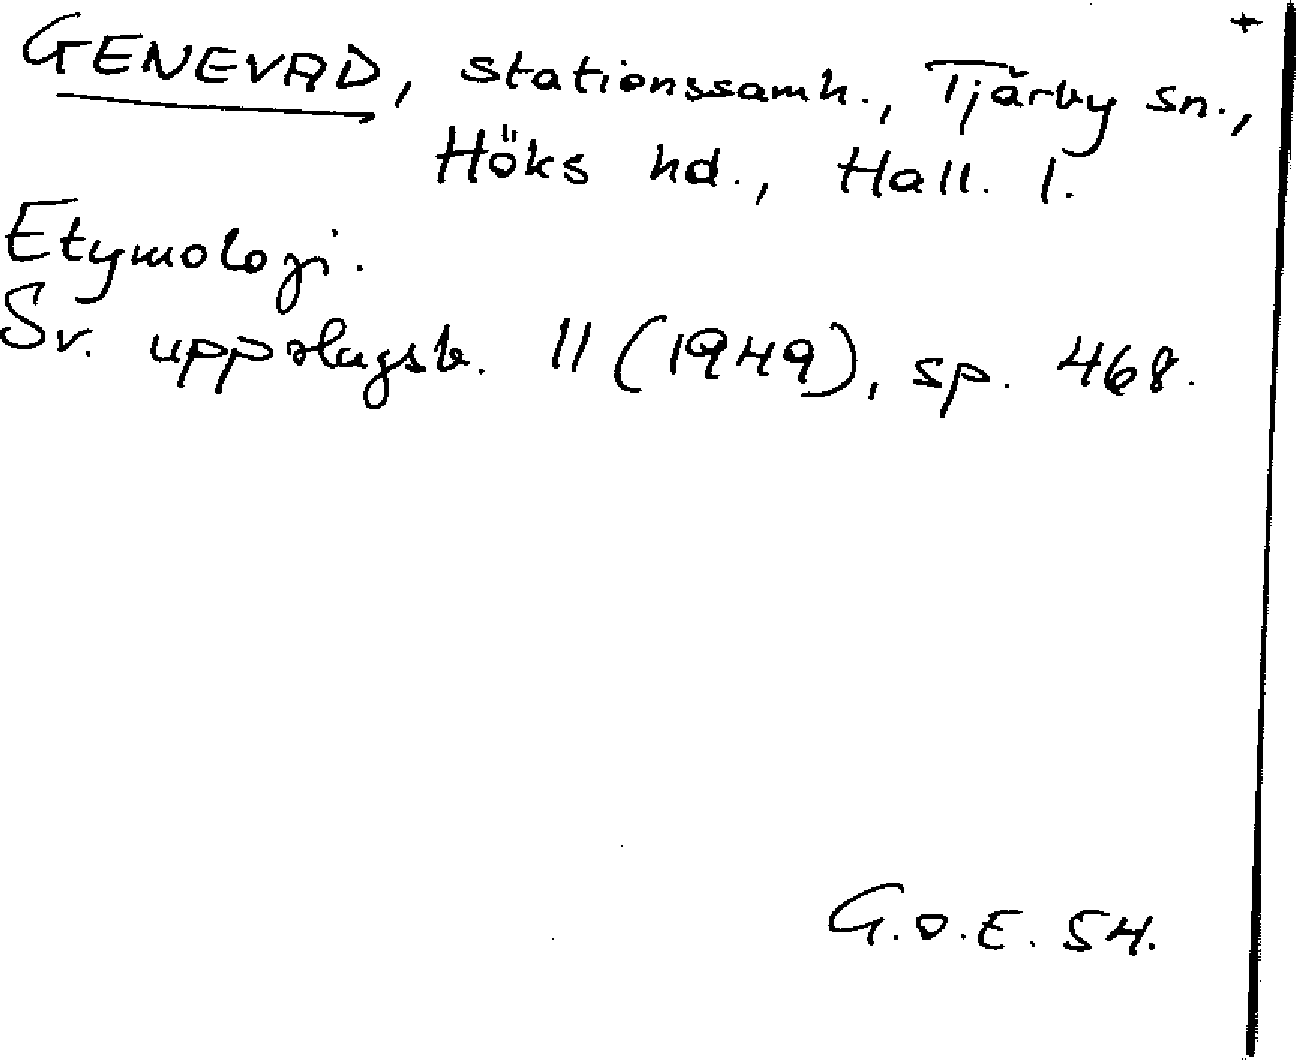 +
GENEVAD, stationssamh., Tjärby sn.,
Höks hd., Hall. l.
Etymologi.
Sv. uppslagsb. 11 (1949), sp. 468.
G.O.E. 54.